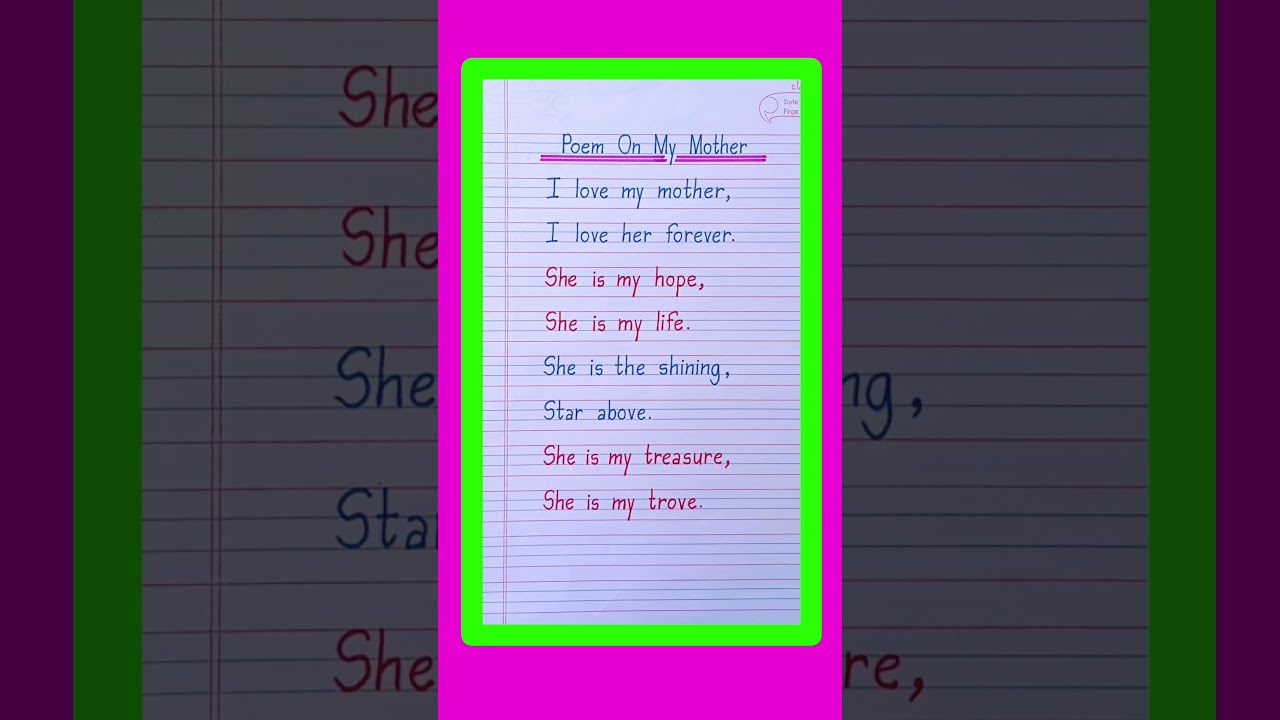 Date
Page
Poem On My Mother
I love my mother,
I love her forever.
She is my hope,
She is my life.
She is the shining,
Star above.
She is my treasure,
She is my trove.